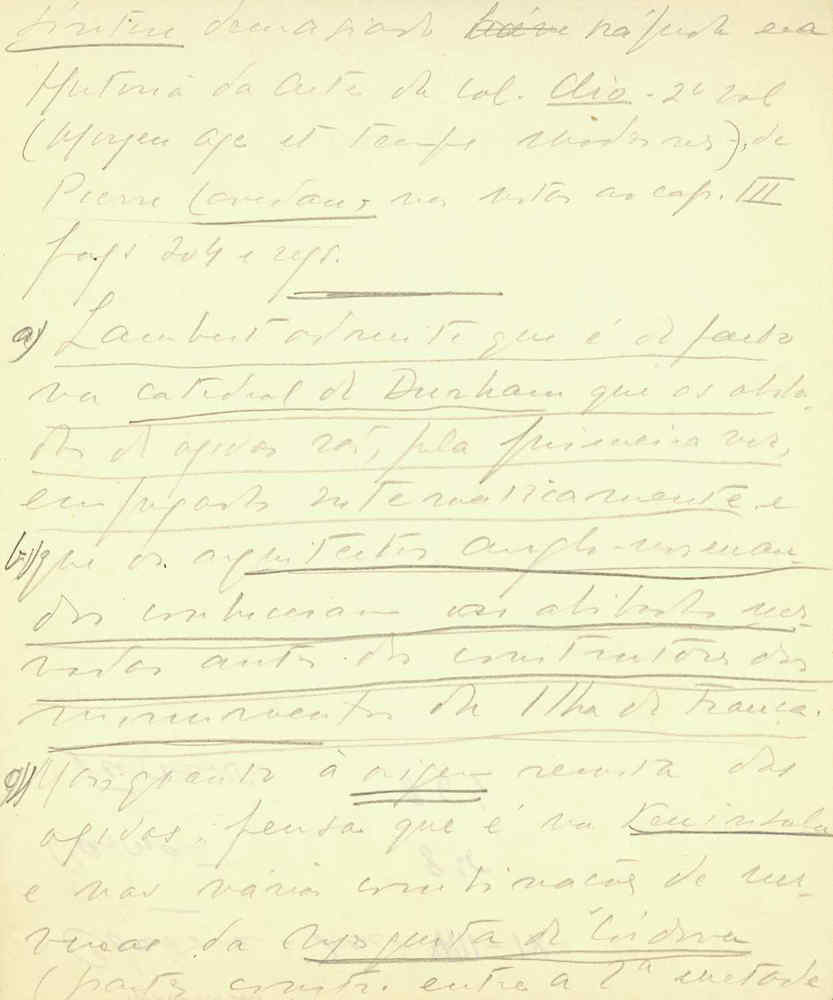 síntese demasiado rápida era a
História da Arte da col. Clio - 2º vol
(Moyen age et temps modernes), de
Pierre Lavedan, nas notas ao cap. III
pags 204 e segs.
a) Lambert admite que é de facto
na catedral de Durham que os aboba-
das de ogivas são, pela primeira vez,
empregadas sistematicamente, e
b) que os arquitectos anglo-norman-
dos conheceram as abóbadas ner-
vadas antes dos construtores dos
monumentos da Ilha de França.
c) Mas quanto à origem remota das
ogivas, pensa que é na Península
e nas várias combinações de ner-
vuras da mesquita de Córdova
(partes constr. entre a 2ª metade